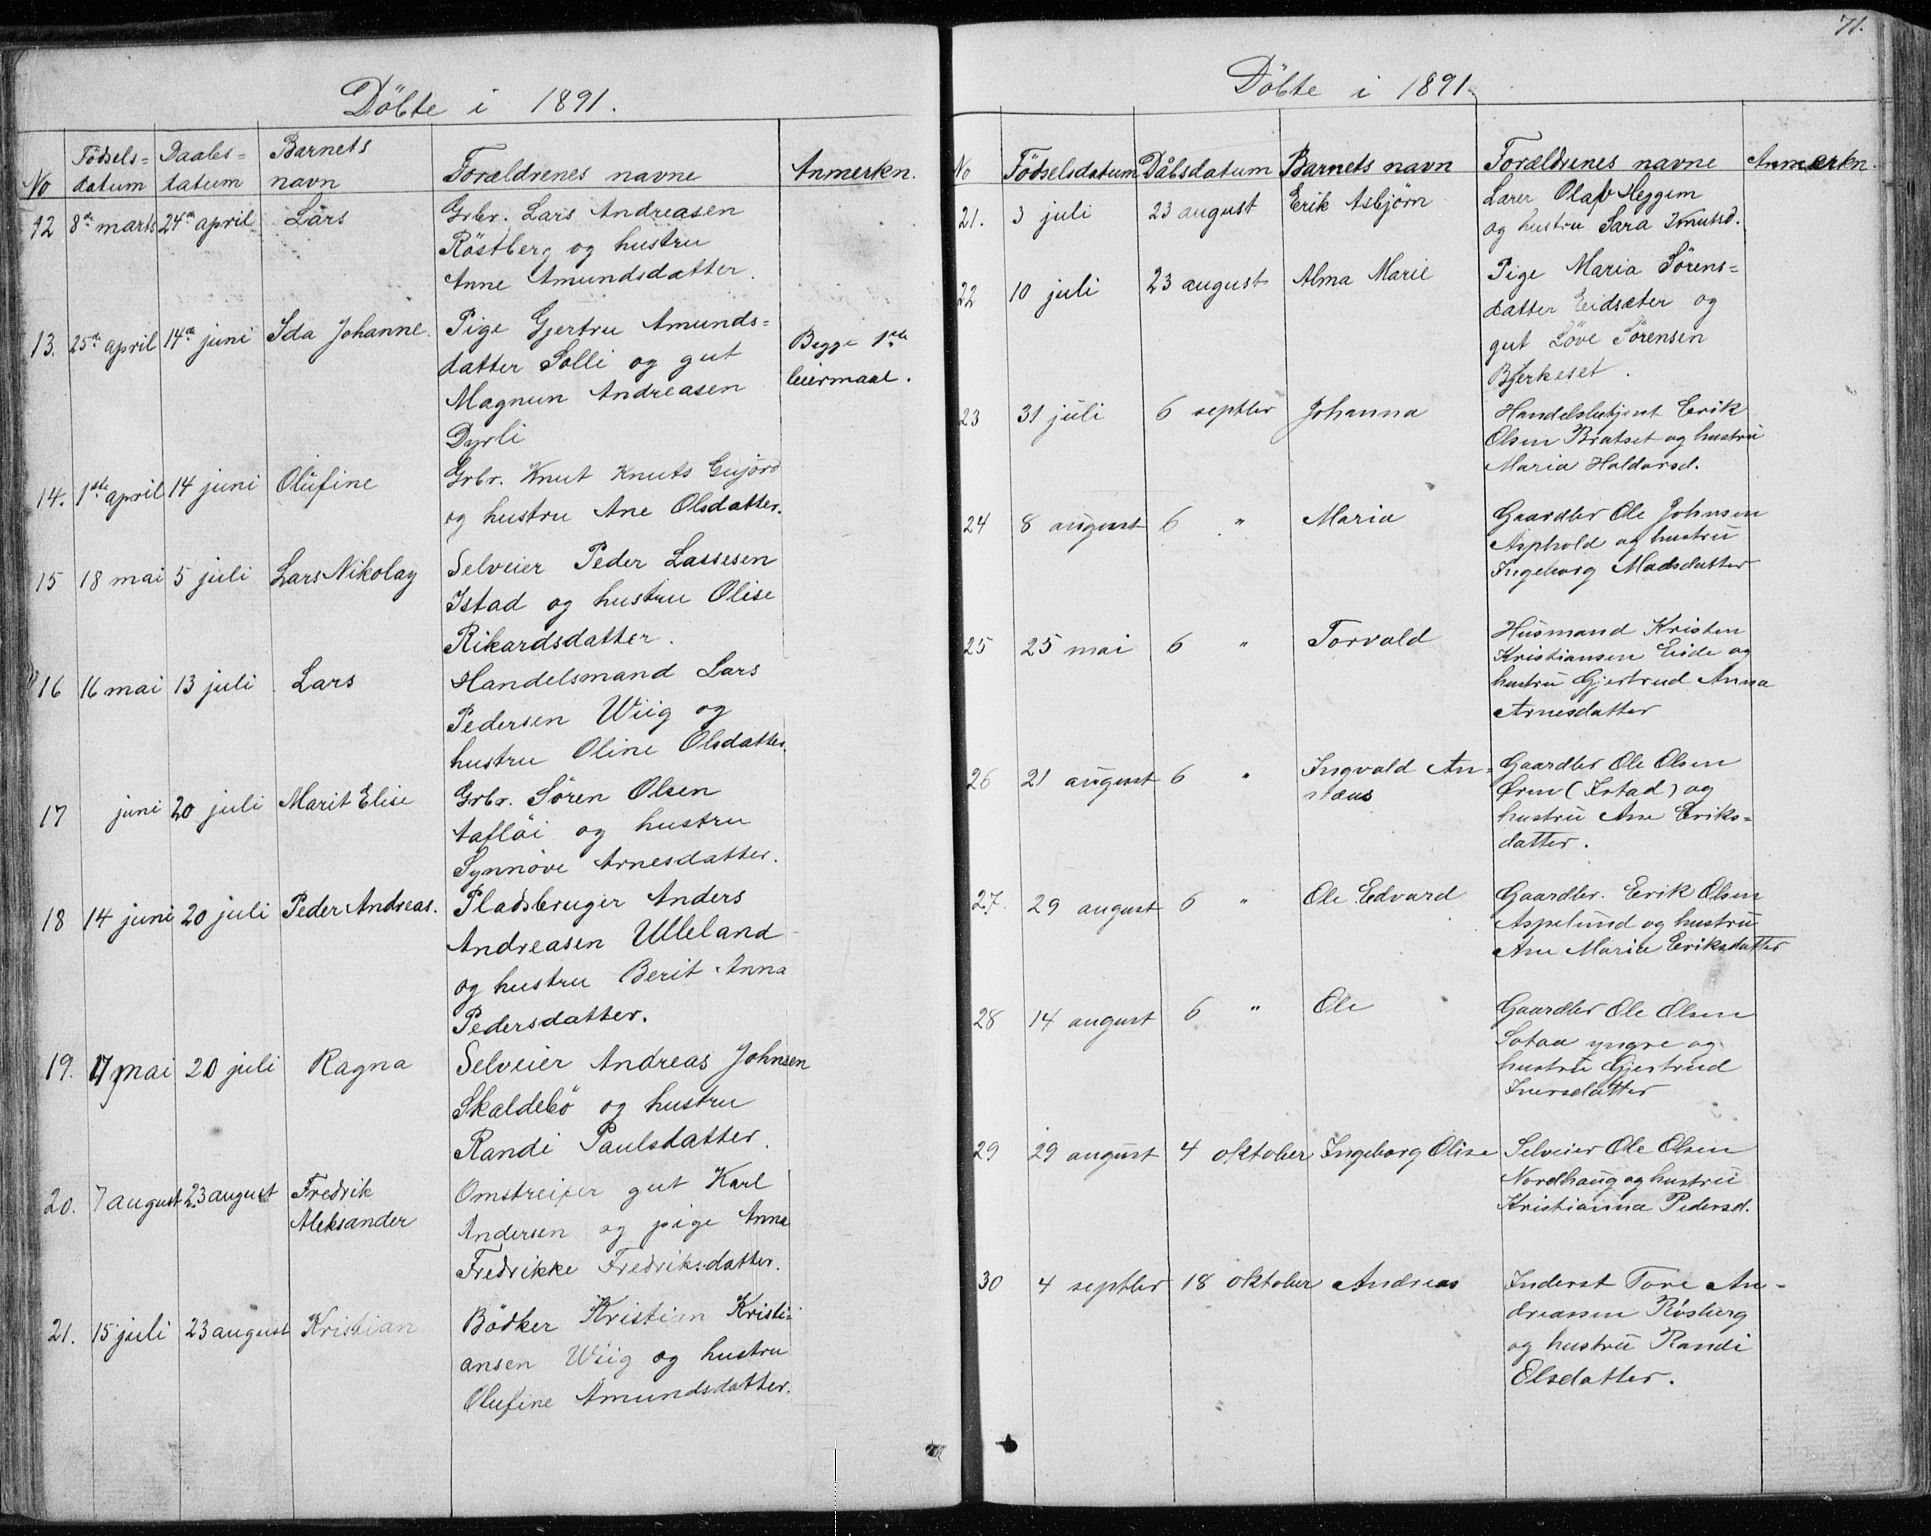 Döbte i 1891.
No Födsels= datum Daabs= datum Barnets navn Forældrenes navne Anmerkn.
12 8de marts 24de april Lars Grbr. Lars Andreasen
Röstberg og hustru
Anne Amundsdatter.
13. 25de april 14de juni Ida Johanne. Pige Gjertru Amunds= Begge 1ste
datter Solli og gut leiermaal.
Magnun Andreasen
Dyrli
14. 1ste april 14 juni Olufine Grbr. Knut Knuts Gujord
og hustru Ane Olsdatter.
15 18 mai 5 juli Lars Nikolay Selveier Peder Lassesen
Istad og hustru Olise
Rikardsdatter.
16 16 mai 13 juli Lars Handelsmand Lars
Pedersen Wiig og
hustru Oline Olsdatter.
17 juni 20 juli Marit Elise Grbr. Sören Olsen
Taflöi og hustru
Synnöve Arnesdatter.
18 14 juni 20 juli Peder Andreas. Pladsbruger Anders
Andreasen Ulleland
og hustru Berit Anna
Pedersdatter.
19. 17 mai 20 juli Ragna Selveier Andreas Johnsen
Skaldebö og hustru
Randi Paulsdatter.
20. 7 august 23 august Fredrik Omstreifer gut Karl
Aleksander Andersen og pige Anna
Fredrikke Fredriksdatter.
21. 15 juli 23 august Kristian Bödker Kristian Kristi=
ansen Wiig og hustru
Olufine Amundsdatter.
71.
Döbte i 1891.
No Födselsdatum Dåbsdatum Barnets navn Forældrenes navne Anmerkn.
21. 3 juli 23 august Erik Asbjörn Lærer Olaf Heggem
og hustru Sara Knutsd.
22 10 juli 23 august Alma Marie Pige Maria Sörens=
datter Eidsæter og
gut Löve Sörensen
Bjerkeset.
23 31 juli 6 septbr Johanna Handelsbetjent Erik
Olsen Bratset og hustru
Maria Haldorsd.
24 8 august 6 " Maria Gaardbr Ole Johnsen
Asphold og hustru
Ingeborg Madsdatter
25 25 mai 6 " Torvald Husmand Kristen
Kristiansen Eide og
hustru Gjertrud Anna
Arnesdatter
26 21 august 6 " Ingvald An= Gaardbr Ole Olsen
stæus Ören (Istad) og
hustru Ane Eriks=
datter.
27. 29 august 6 " Ole Edvard Gaardbr. Erik Olsen
Aspelund og hustru
Ane Maria Eriksdatter
28 14 august 6 " Ole Gaardbr Ole Olsen
Sotaa yngre og
hustru Gjertrud
Iversdatter
29 29 august 4 oktober Ingeborg Olise Selveier Ole Olsen
Nordhaug og hustru
Kristianna Pedersd.
30 4 septbr 18 oktober Andreas Inderst Tore An=
dreassen Rösberg
og hustru Randi
Elsdatter.